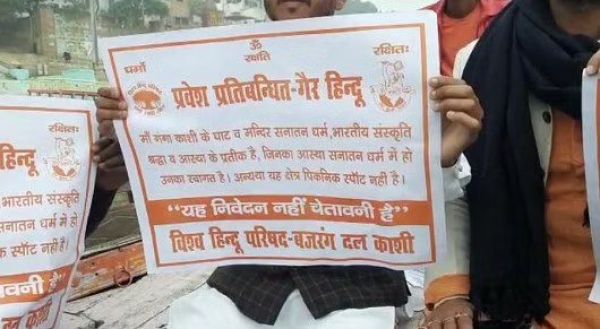 ॐ
धर्मो रक्षति रक्षितः
प्रवेश प्रतिबन्धित-गैर हिन्दू
माँ गंगा काशी के घाट व मन्दिर सनातन धर्म,भारतीय संस्कृति
श्रद्धा व आस्था के प्रतीक है, जिनका आस्था सनातन धर्म में हो
उनका स्वागत है। अन्यथा यह क्षेत्र पिकनिक स्पॉट नहीं है।
“यह निवेदन नहीं चेतावनी है”
विश्व हिन्दू परिषद-बजरंग दल काशी
रक्षितः
हिन्दू
भारतीय संस्कृति
सनातन धर्म में हो
स्पॉट नहीं है।
चेतावनी है”
दल काशी